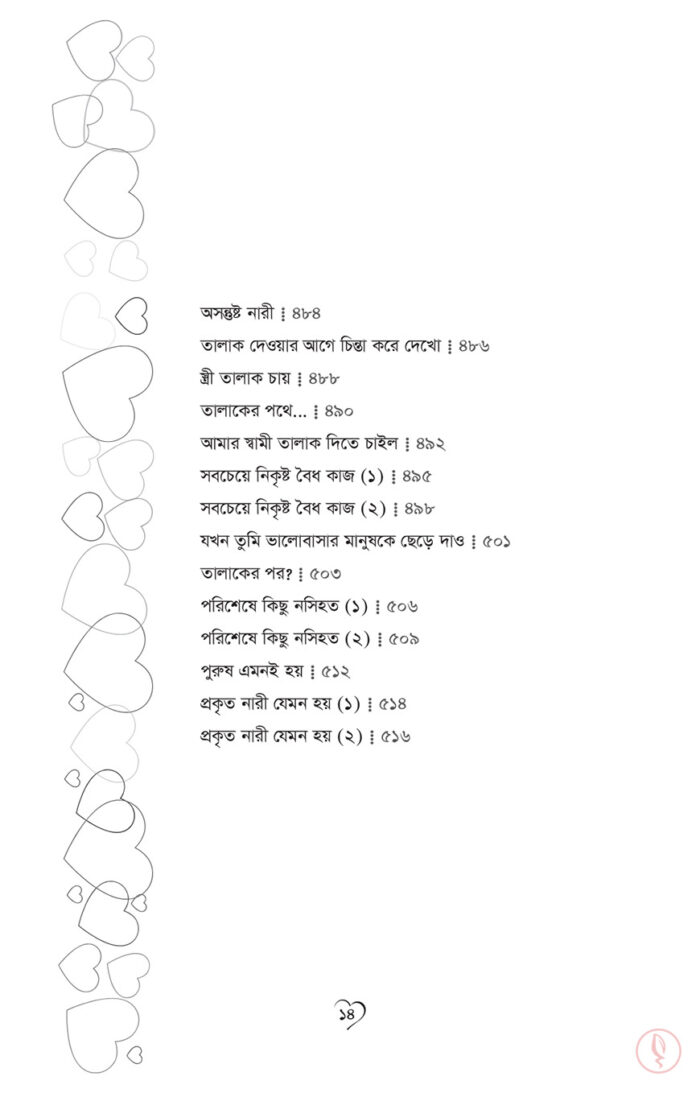 অসন্তুষ্ট নারী ⁞ ৪৮৪
তালাক দেওয়ার আগে চিন্তা করে দেখো ⁞ ৪৮৬
স্ত্রী তালাক চায় ⁞ ৪৮৮
তালাকের পথে... ⁞ ৪৯০
আমার স্বামী তালাক দিতে চাইল ⁞ ৪৯২
সবচেয়ে নিকৃষ্ট বৈধ কাজ (১) ⁞ ৪৯৫
সবচেয়ে নিকৃষ্ট বৈধ কাজ (২) ⁞ ৪৯৮
যখন তুমি ভালোবাসার মানুষকে ছেড়ে দাও ⁞ ৫০১
তালাকের পর? ⁞ ৫০৩
পরিশেষে কিছু নসিহত (১) ⁞ ৫০৬
পরিশেষে কিছু নসিহত (২) ⁞ ৫০৯
পুরুষ এমনই হয় ⁞ ৫১২
প্রকৃত নারী যেমন হয় (১) ⁞ ৫১৪
প্রকৃত নারী যেমন হয় (২) ⁞ ৫১৬
১৪